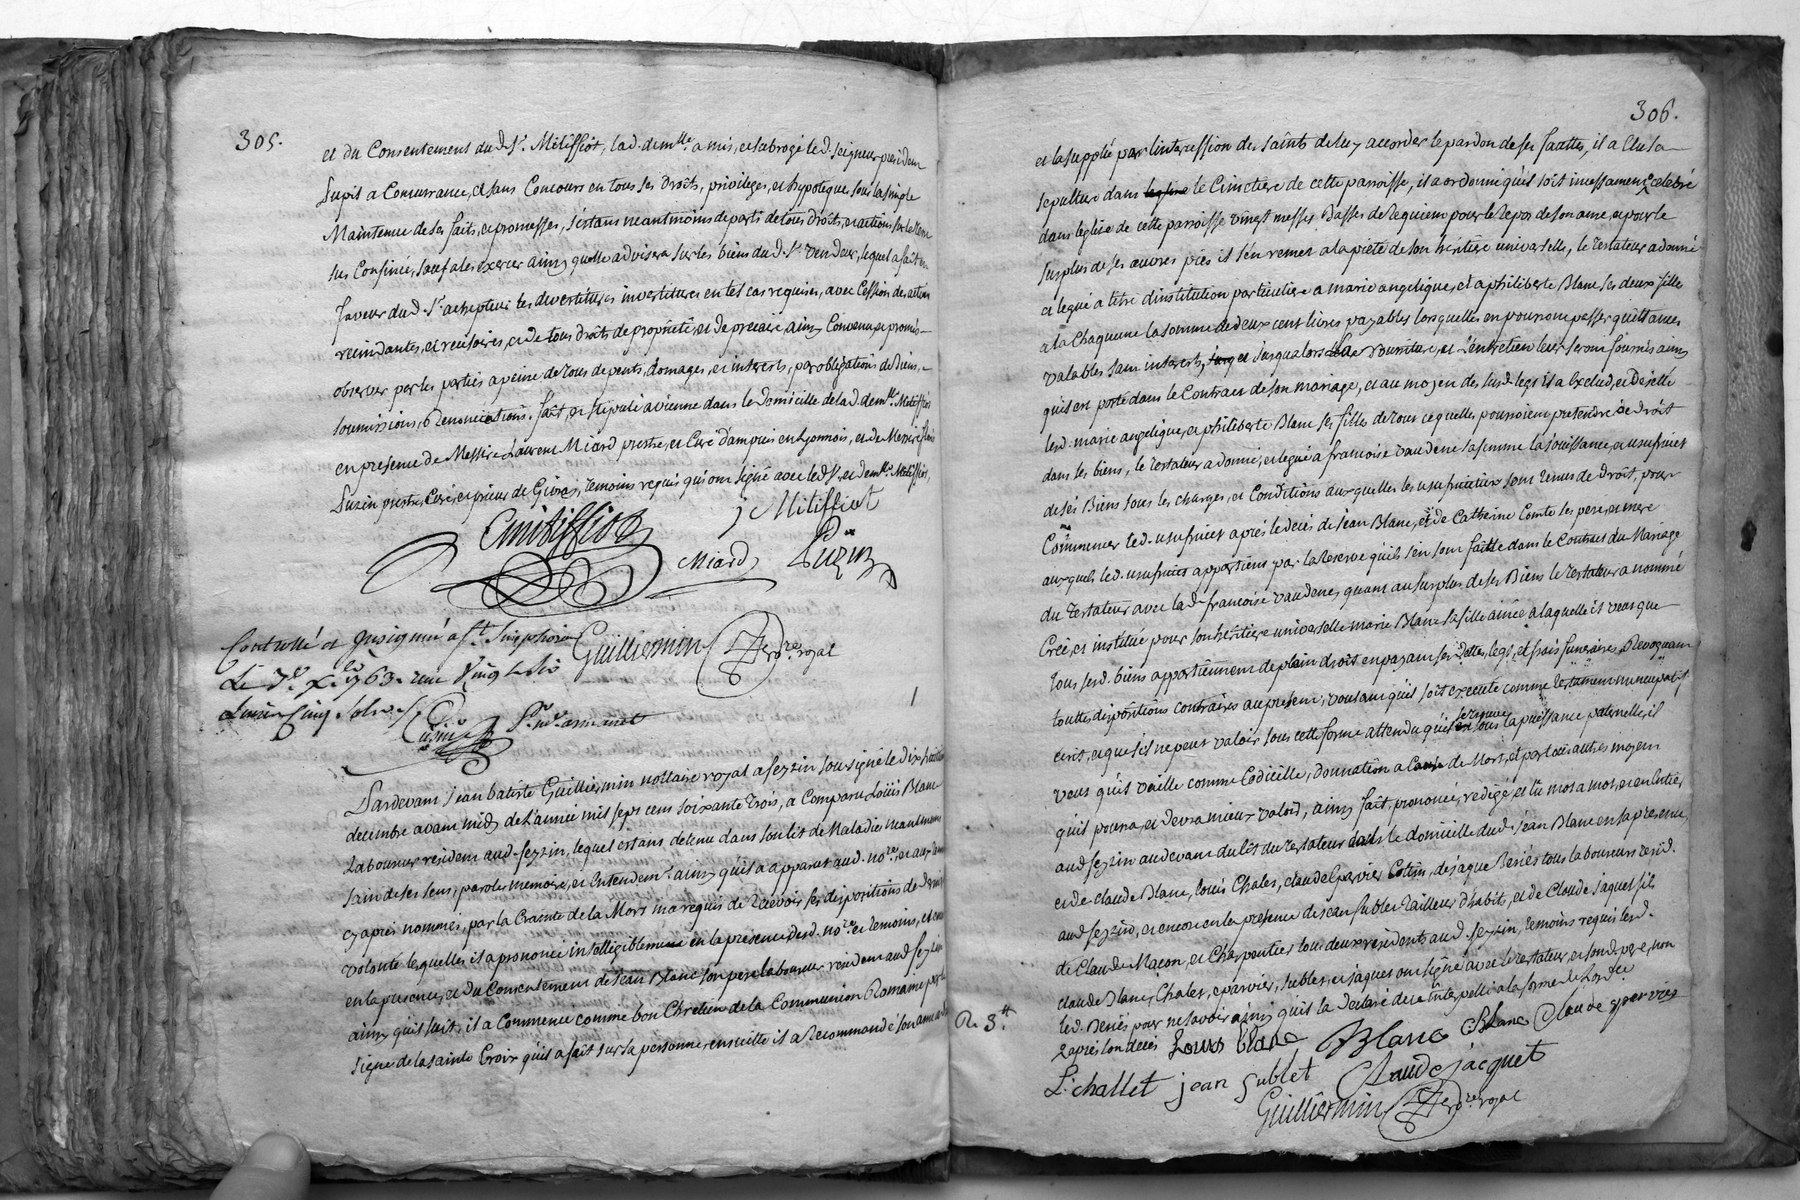 305.
et du Consentement dud. Sr. Mitiffiot, lad. demlle. a mis, et subrogé led. seigneur president
Lupit a Concurrance, et sans Concours en tous ses droits, privileges, et hypoteque sous la simple
Maintenue de ses faits, et promesses, s'estans neantmoins departi de tous droits, et actions sur la terre
sus Confinée, sauf a les exercer ainsy quelle advisera sur les biens dud. Sr. vendeur, lequel a fait en
faveur dud. Sr achepteur les devestitures investitures en tel cas requises, avec Cession des actions
rescindantes, et rescisoires, et de tous droits de proprieté, et de precaire, ainsy Convenu et promis
observer par les parties a peine de tous depents, domages, et interests, par obligations de Biens,
soumissions, & renonciations, fait, et stipulé a vienne dans le domicille de lad. demlle. Mitiffiot
en presence de Messire Laurent Miard prestre, et Curé d'ampuis en Lyonnois, et de Messire
Luzin prestre, Curé, et prieur de Givors, temoins requis qui ont signé avec led. Sr. et demlle. Mitiffiot,
Cmitiffiot
j Mitiffiot
Miard
Luzin
Controllé et Insinué a St. Simphorien
Le 7e. Xbre 1763. reçu vingt six
Livres Cinq sols
Guilliermin nore. royal
Pardevant Jean batiste Guilliermin nottaire royal a feyzin soussigné le dix huit
decembre avant midy de l'année mil sept cent soixante trois, a Comparu Loüis Blanc
Laboureur resident aud. feyzin, lequel estans detenu dans son lit de Maladie neantmoins
sain de ses sens, parole, memoire, et Entendemt. ainsy qu'il a apparut aud. nore. et aux temoins
cy apres nommés, par la Crainte de la Mort m'a requis de recevoir ses dispositions de derniere
volonté lesquelles il a prononcé intelligiblement en la presence desd. nore. et temoins, et encore
en la presence, et du Consentement de Jean Blanc son pere laboureur resident aud. feyzin
ainsy qu'il suit, il a Commencé comme bon Chretien de la Communion Romaine par le
signe de la sainte Croix qu'il a fait sur sa personne, ensuitte il a Recommandé son ame a dieu
306.
et la supplié par l'intercession des saints de luy accorder le pardon de ses fauttes, il a Elu sa
sepulture dans leglise le Cimetiere de cette parroisse, il a ordonné qu'il soit incessament celebré
dans leglise de cette parroisse vingt messes Basses de Requiem pour le Repos de son ame, et pour le
surplus de ses œuvres pies il s'en remet a la pieté de son héritiere universelle, le testateur a donné
et legué a titre d'institution particuliere a marie angelique, et a philiberte Blanc ses deux filles
a la Chaqune la somme de deux cent livres payables lorsquelles en pourront passer quittances
valables sans interests, jusqualors La nourriture, et l'entretien leur seront fournis ainsy
qu'il est porté dans le Contract de son mariage, et au moyen des susd. legs il a Exclud, et Dejetté
lesd. marie angelique, et philiberte Blanc ses filles de tout ce quelles pourroient pretendre de droit
dans les biens, le testateur a donné, et legué a francoise vaudene sa femme la joüissance, et usufruict
de ses Biens sous les charges, et Conditions auxquelles les usufruictiers sont tenus de droit, pour
Commencer led. usufruict aprés le decés de Jean Blanc, et de Catherine Comte ses pere, et mere
auxquels led. usufruict appartient par la Reserve qu'ils s'en sont faitte dans le Contract du Mariage
du testateur avec lad. francoise vaudene, quant au surplus de ses Biens le testateur a nommé
Créé, et institué pour son heritiere universelle marie Blanc sa fille ainée a laquelle il veut que
tous sesd. biens appartiennent de plein droit en payant ses dettes, legs, et frais funeraire, Revoquant
touttes dispositions contraires au present, voulant qu'il soit executé comme testament nuncupatif
ecrit, et que s'il ne peut valoir sous cette forme attendu qu'il est se trouve sous la puissance paternelle, il
veut qu'il vaille comme Codicille, donnation a Cause de Mort, et par tous autres moyens
qu'il pourra, et devra mieux valoir, ainsy fait, prononcé, redigé, et lû mot a mot, et en Entier
aud. feyzin au devant du lit du testateur dans le domicille dud. Jean Blanc en sa presence,
et de claude Blanc, louis Chalet, claude Eparvier Cottin, de jaque Beriés tous laboureurs resid.
aud. feyzin, et encore en la presence de jean sublet tailleur d'habits, et de Claude jaquet fils
de Claude Maçon, et Charpentier tous deux residents aud. feyzin, temoins requis lesd.
claude Blanc, Chalet, eparvier, sublet, et jaques ont signé avec le testateur, et sond. pere, non
led. Beriés pour ne savoir ainsy qu'il la declaré de ce interpellé a la forme de lordce
Re. 3.tt
aprés son decés Louis blanc Blanc C Blanc Claude eparvier
L: challet jean sublet Claude jacquet
Guilliermin nore. royal